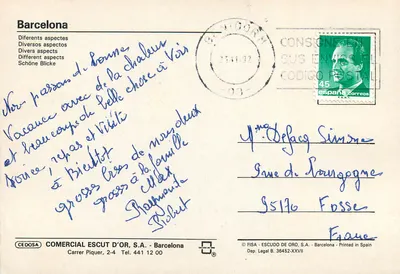 Barcelona
Diferents aspectes
Diversos aspectos
Divers aspects
Different aspects
Schöne Blicke
Nous passons de bonnes
Vacance avec de la chaleur
et beaucoup de belle chose à Voir
Soirée, repas et Visite
à Bientôt
grosses bises de nous deux
grosso à la famille
Max
Raymonde
Robert
CONSIGNE
SUS ENV
CODIGO
45
españa
correos
Mme Defacq Simone
rue de Bourgogne
95470 Fosses
France
CEDOSA
COMERCIAL ESCUT D'OR, S.A. - Barcelona
Carrer Piquer, 2-4 Tel. 441 12 00
© FISA - ESCUDO DE ORO, S.A. - Barcelona - Printed in Spain
Dep. Legal B. 36452-XXVII